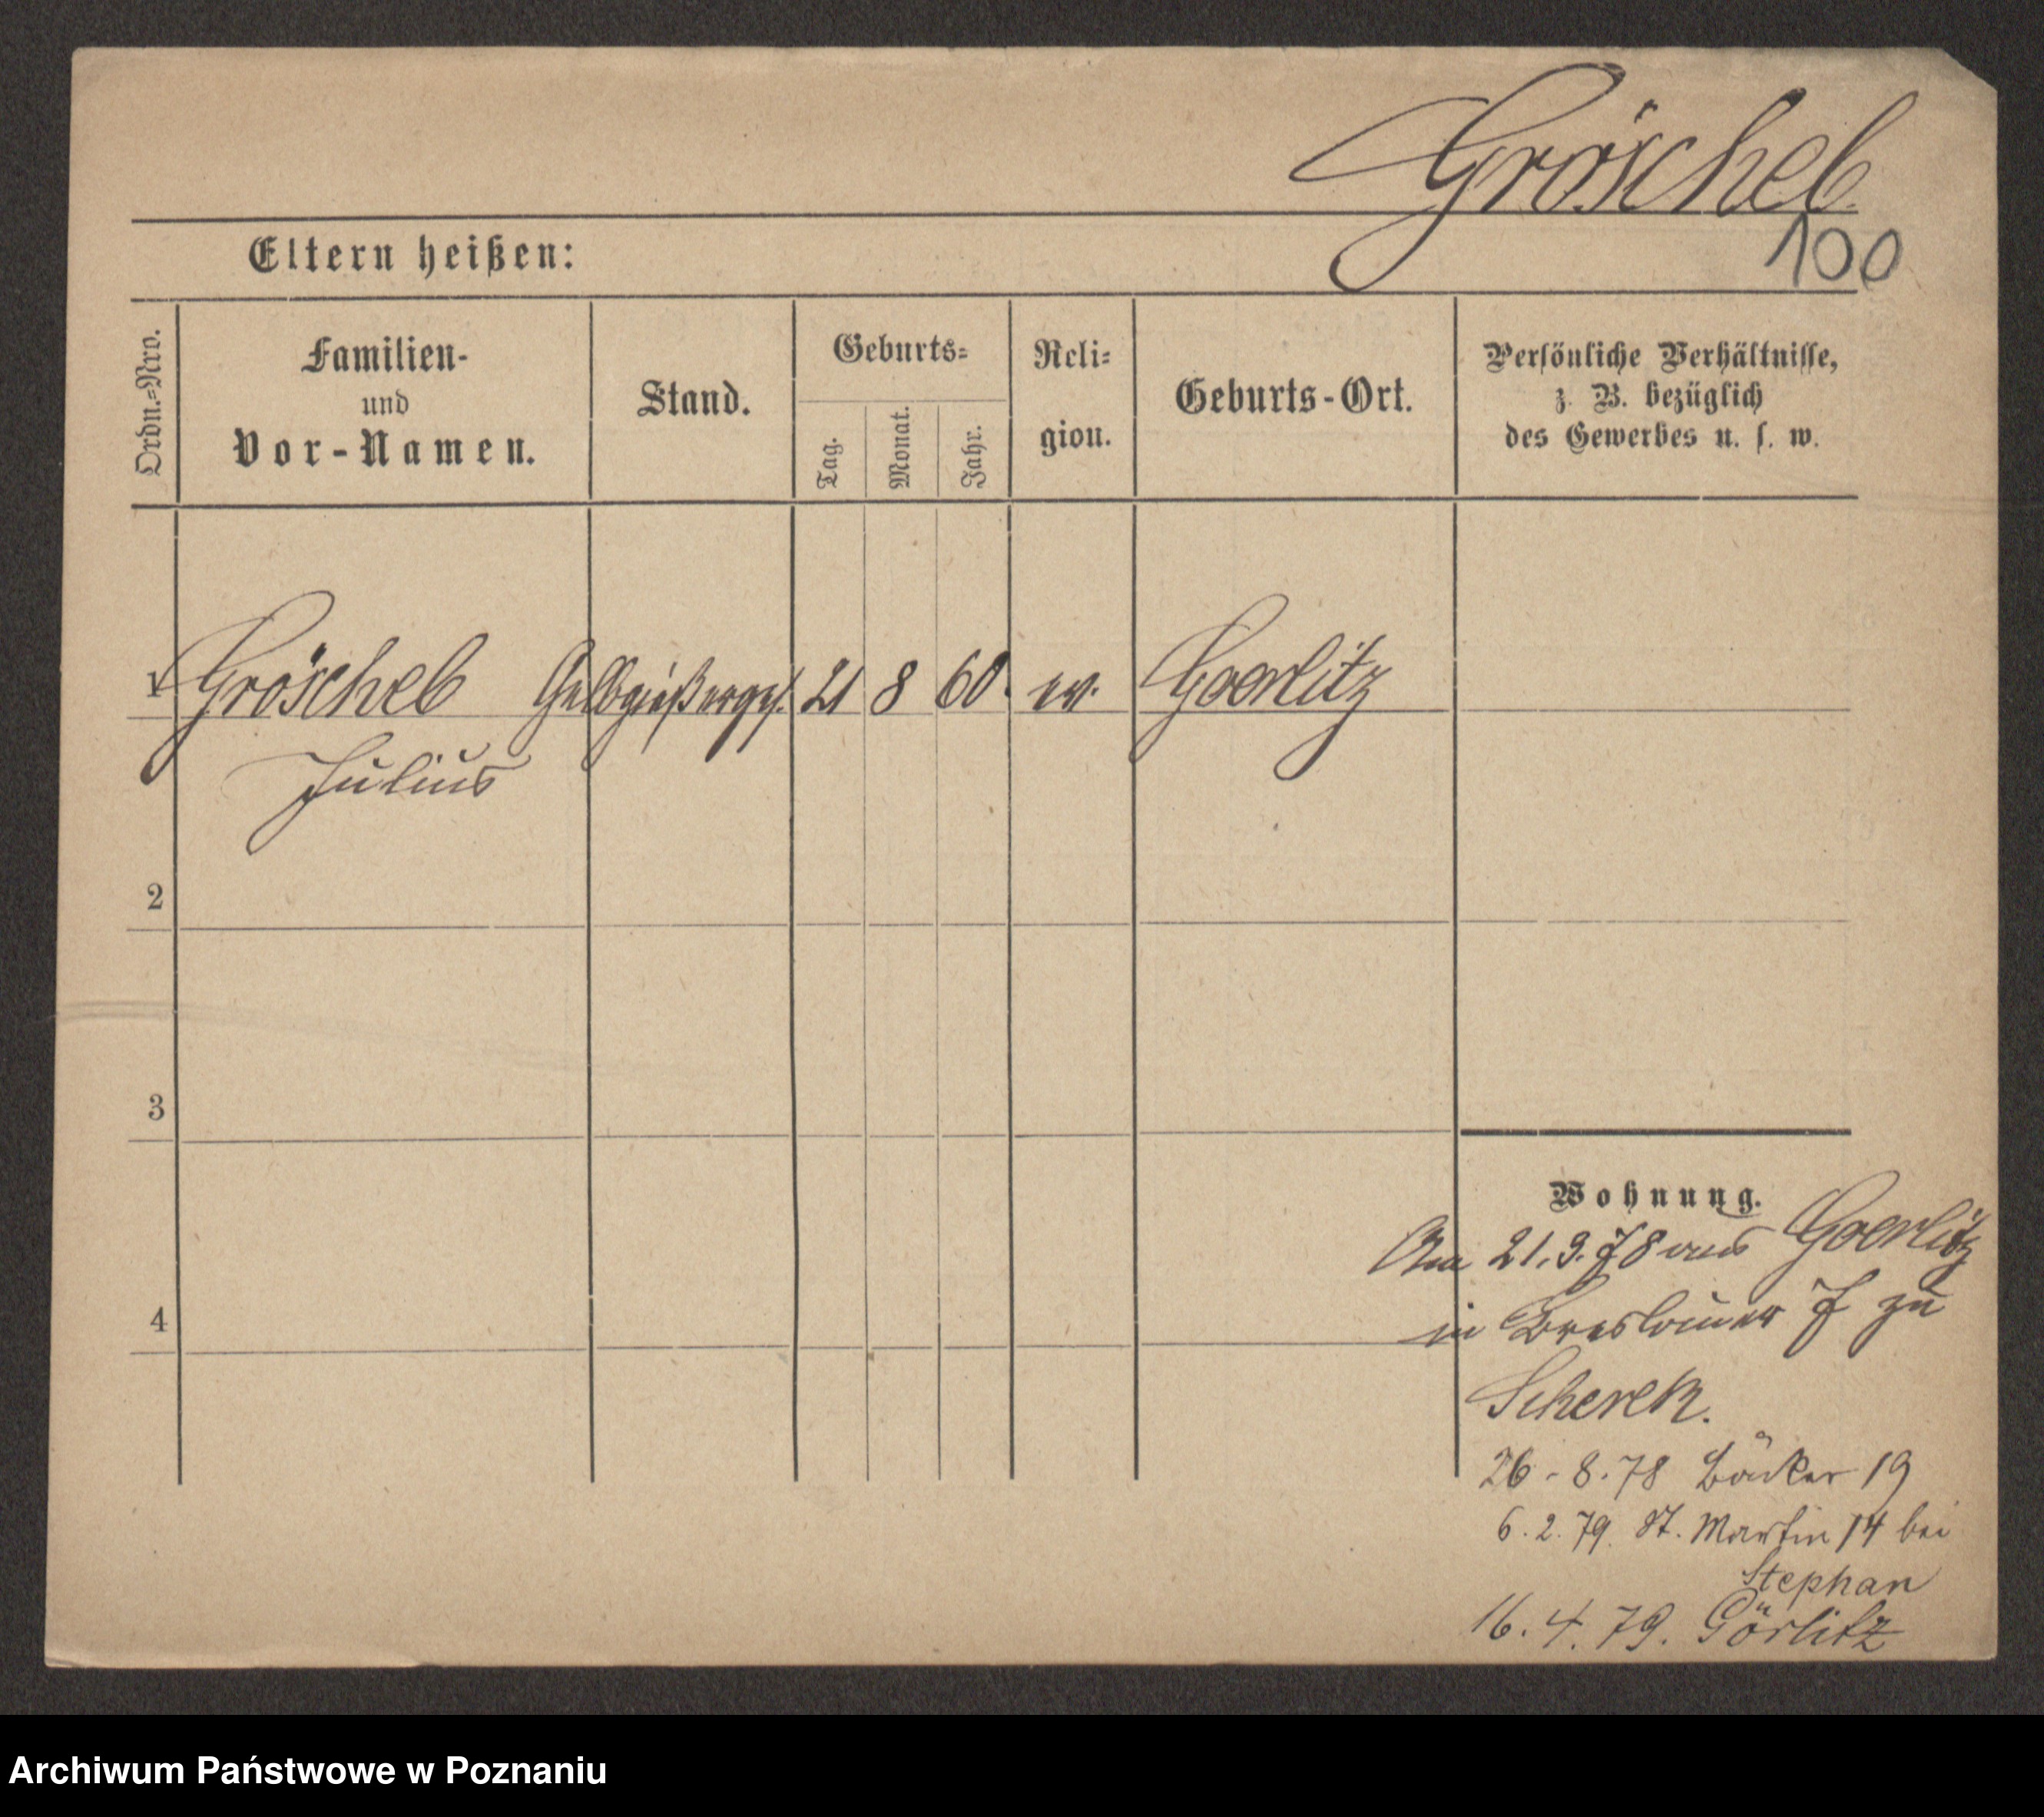 Gröschel
100
Eltern heißen:
Ordn.-Nro.
Familien-
und
Vor-Namen.
Stand.
Geburts-
Tag.
Monat.
Jahr.
Reli-
gion.
Geburts-Ort.
Persönliche Verhältnisse,
z. B. bezüglich
des Gewerbes u. s. w.
1 Gröschel Gelbgießerges. 21 8 60. ev. Goerlitz
Julius
2
3
4
Wohnung.
Am 21.3.78 aus Goerlitz
in Breslauer 7 zu
Scherek.
26.8.78 Bäcker 19
6.2.79. St. Martin 14 bei
Stephan
16.4.79. Görlitz
Archiwum Państwowe w Poznaniu